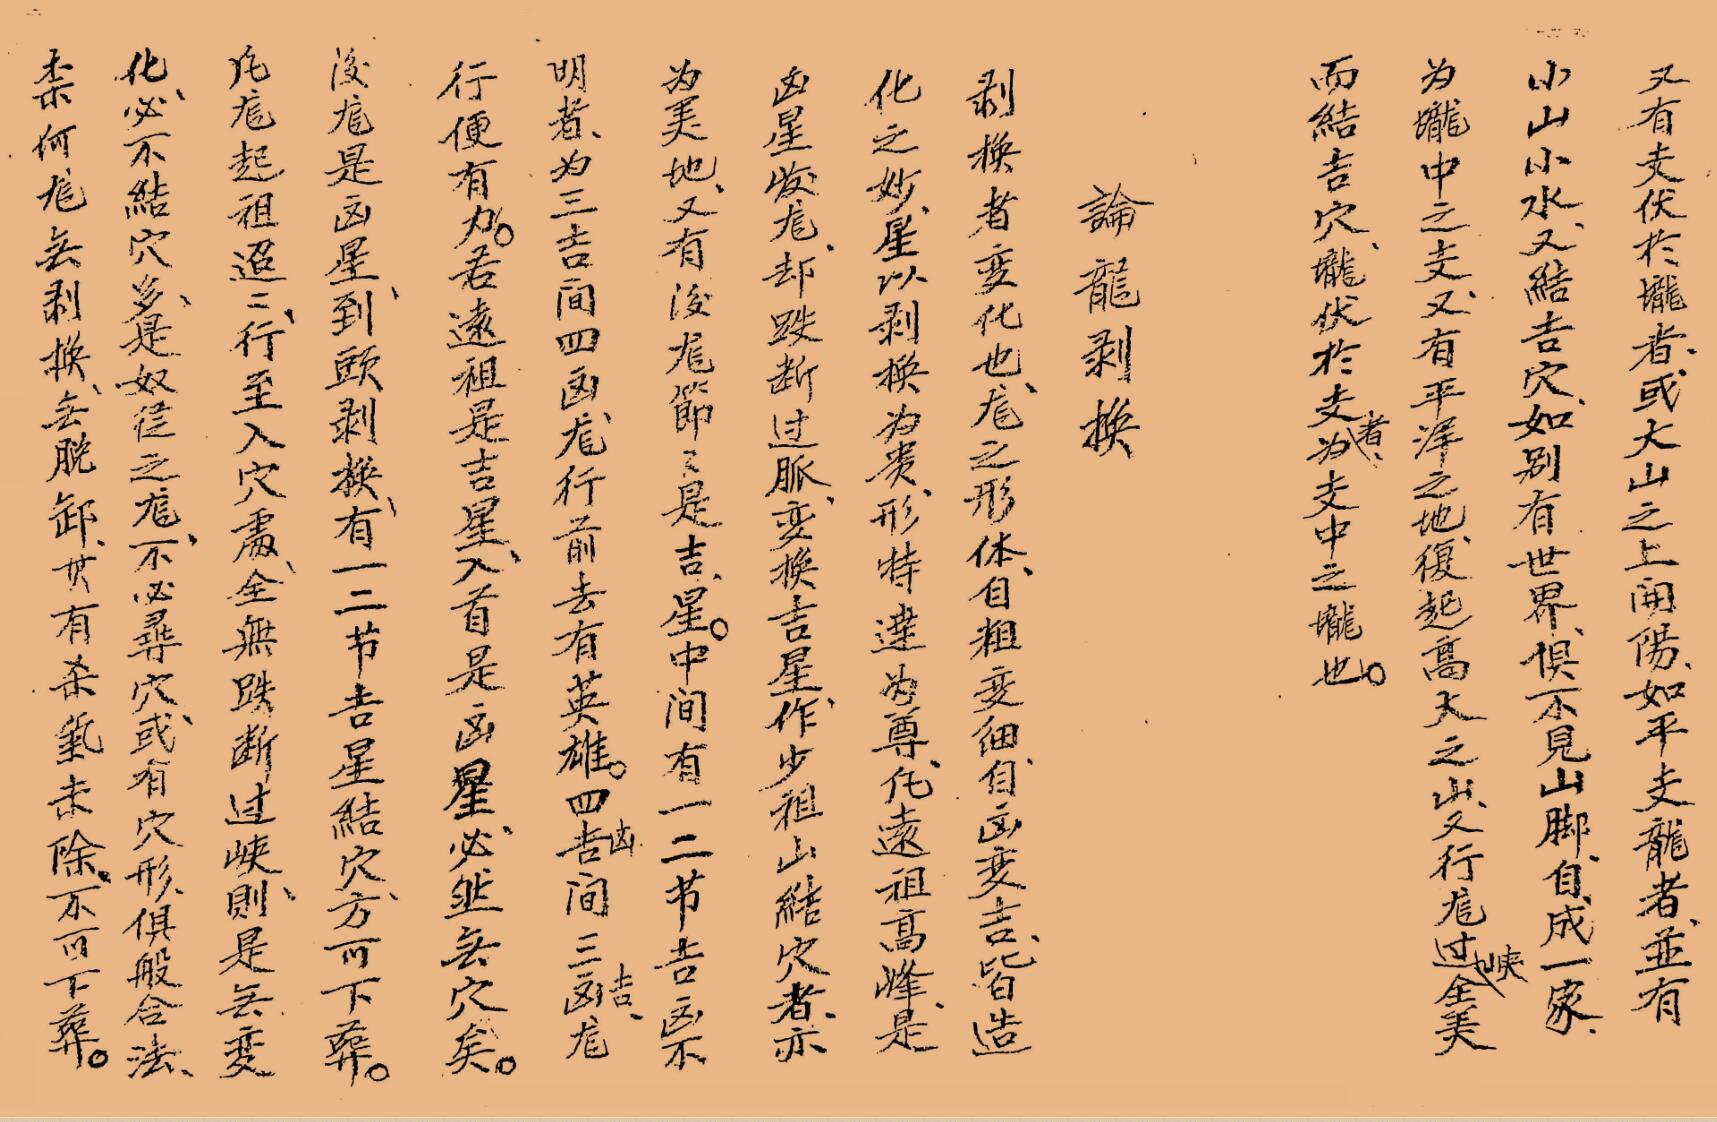 又有支伏於壠者、或大山之上開陽、如平支龍者、並有
小山小水、又結吉穴、如别有世界、俱不見山脚、自成一家、
为壠中之支、又有平洋之地、復起高大之山、又行尨过峡全美
而結吉穴、壠伏於支者、为支中之壠也。
論龍剥換
剥換者变化也、尨之形体、自粗变细、自凶变吉、皆造
化之妙、星以剥換为贵、形特達为尊、凡遠祖高峰、是
凶星发尨、却跌断过脈、变換吉星、作少祖山結穴者、亦
为美地、又有後尨節〻是吉星。中间有一二节吉凶不
明者、为三吉间四凶、尨行前去有英雄。四凶间三吉、尨
行便有力。若遠祖是吉星、入首是凶星、必然无穴矣。
後尨是凶星、到頭剥換、有一二节吉星結穴、方可下葬。
凡尨起祖、迢〻行至入穴處、全無跌断过峡、則是无变
化、必不結穴、多是奴從之尨、不必尋穴、或有穴形、俱般合法、
柰何尨无剥換、无脱卸、其有杀氣未除、不可下葬。